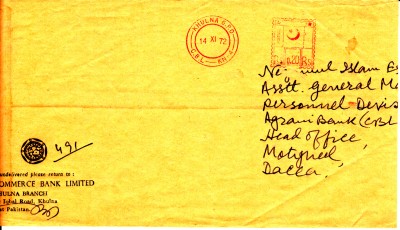 KHULNA G.P.O.
14 XI 72
0.20 Rs
Islam
Asstt. general
Personnel Devis
Agrani Bank (CBL
Head office,
Motijheel,
Dacca.
491
undelivered please return to :
COMMERCE BANK LIMITED
HULNA BRANCH
Iqbal Road, Khulna
st Pakistan.